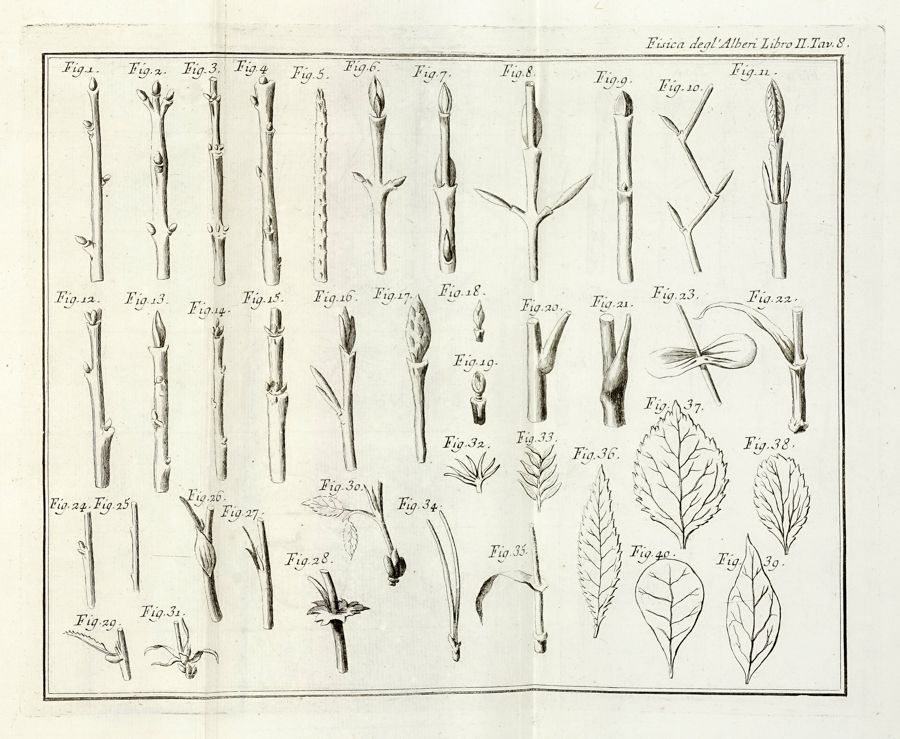 Fisica degl'Alberi Libro II. Tav. 8.
Fig. 1. Fig. 2. Fig. 3. Fig. 4 Fig. 5. Fig. 6. Fig. 7. Fig. 8. Fig. 9. Fig. 10. Fig. 11.
Fig. 12. Fig. 13. Fig. 14. Fig. 15. Fig. 16. Fig. 17. Fig. 18. Fig. 20. Fig. 21. Fig. 23. Fig. 22.
Fig. 19.
Fig. 37.
Fig. 32. Fig. 33. Fig. 36. Fig. 38.
Fig. 24. Fig. 25 Fig. 26. Fig. 27. Fig. 30. Fig. 34.
Fig. 28. Fig. 35. Fig. 40. Fig. 39.
Fig. 29. Fig. 31.